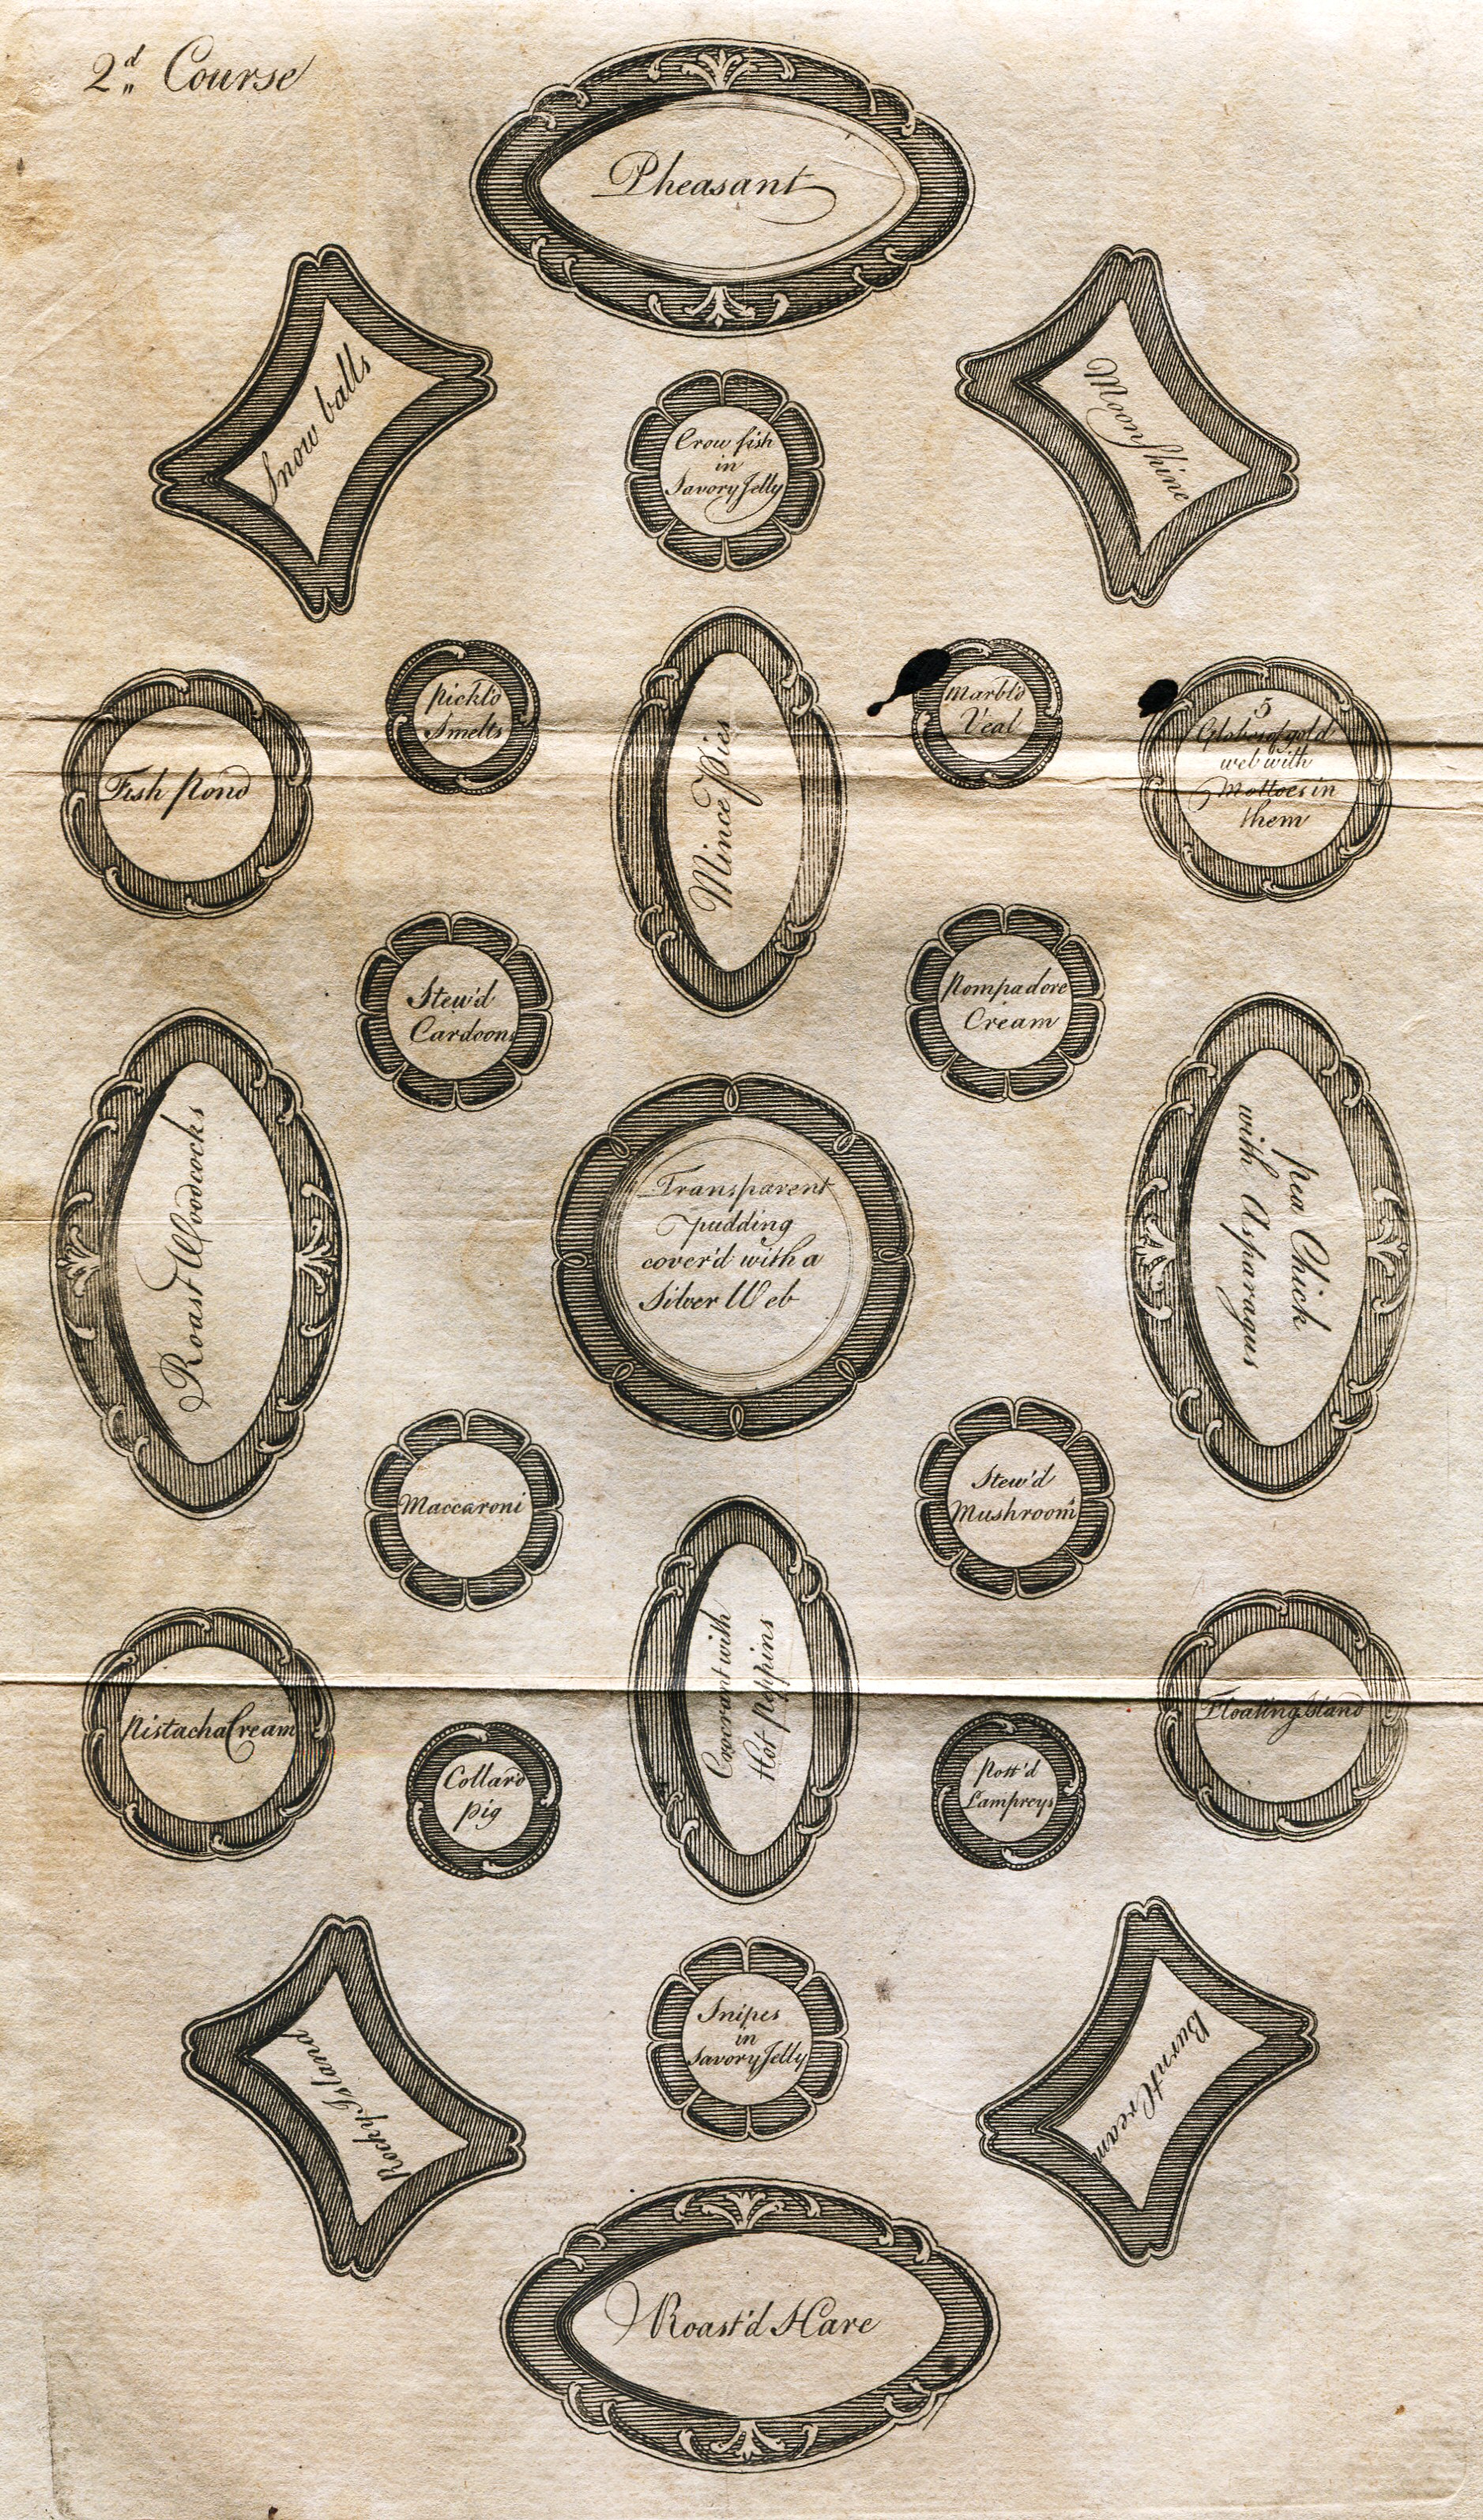 2d Course
Pheasant
Snow balls
Moon Shine
Crow fish
in
Savory Jelly
pickl'd
Smelts
Mince Pies
Marbl'd
Veal
Fish pond
5
Globes of gold
web with
Mottoes in
them
Stew'd
Cardoons
Pompadore
Cream
Roast Woodcocks
Transparent
pudding
cover'd with a
Silver Web
pea Chick
with Asparagus
Maccaroni
Stew'd
Mushroom's
Pistacha Cream
Collar'd
pig
Crocrant with
Hot peppins
Pott'd
Lampreys
Floating Island
Rocky Island
Snipes
in
Savory Jelly
Burnt Cream
Roast'd Hare